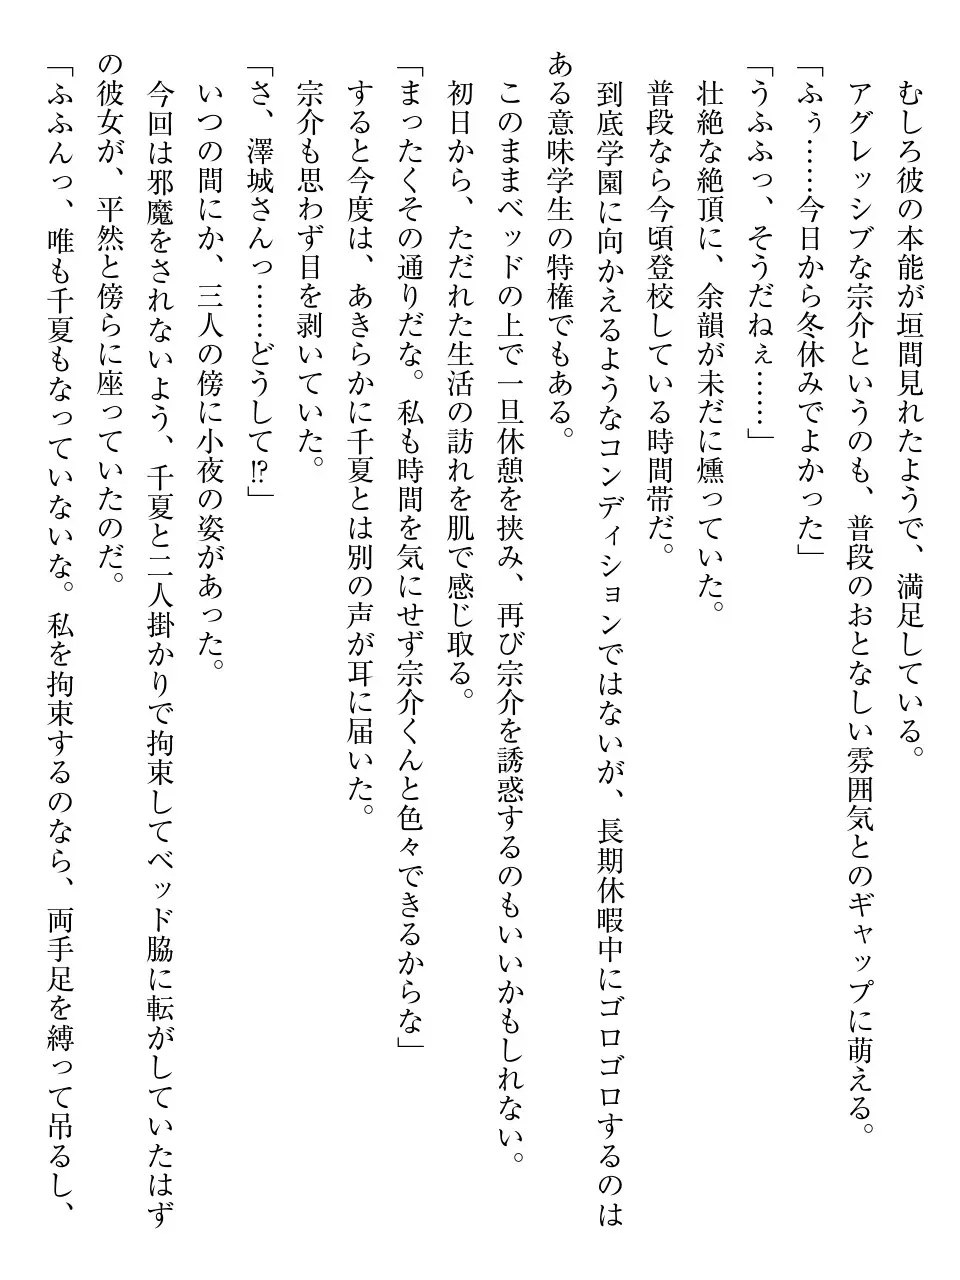 むしろ彼の本能が垣間見れたようで、満足している。
アグレッシブな宗介というのも、普段のおとなしい雰囲気とのギャップに萌える。
「ふぅ……今日から冬休みでよかった」
「うふふっ、そうだねぇ……」
壮絶な絶頂に、余韻が未だに燻っていた。
普段なら今頃登校している時間帯だ。
到底学園に向かえるようなコンディションではないが、長期休暇中にゴロゴロするのは
ある意味学生の特権でもある。
このままベッドの上で一旦休憩を挟み、再び宗介を誘惑するのもいいかもしれない。
初日から、ただれた生活の訪れを肌で感じ取る。
「まったくその通りだな。私も時間を気にせず宗介くんと色々できるからな」
すると今度は、あきらかに千夏とは別の声が耳に届いた。
宗介も思わず目を剥いていた。
「さ、澤城さんっ……どうして⁉」
いつの間にか、三人の傍に小夜の姿があった。
今回は邪魔をされないよう、千夏と二人掛かりで拘束してベッド脇に転がしていたはず
の彼女が、平然と傍らに座っていたのだ。
「ふふんっ、唯も千夏もなっていないな。私を拘束するのなら、両手足を縛って吊るし、